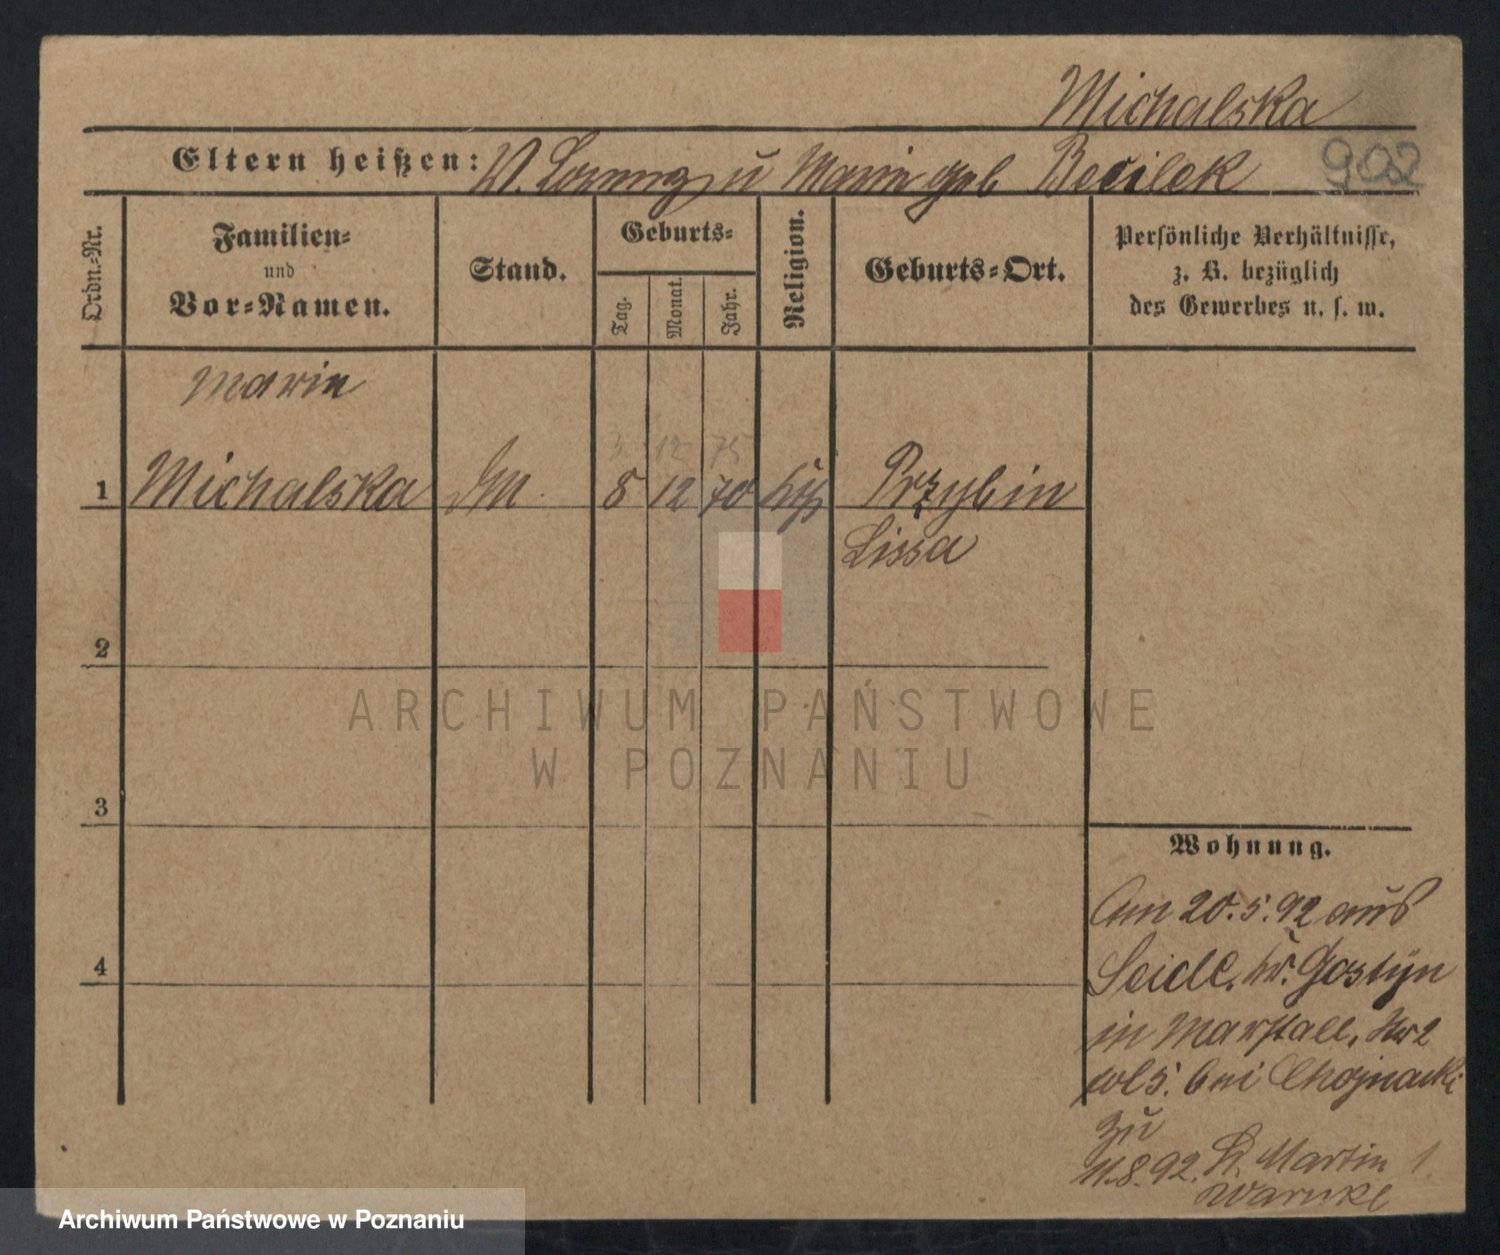 Michalska
Eltern heißen: W. Lorenz u Marie geb Becilek
902
Ordn.-Nr.
Familien-
und
Vor-Namen.
Stand.
Geburts-
Tag.
Monat.
Jahr.
Religion.
Geburts-Ort.
Persönliche Verhältnisse,
z. B. bezüglich
des Gewerbes u. s. w.
Marie
3 12 75
1 Michalska 8 12 70 kth Przybin
Lissa
2
3
4
Wohnung.
Am 20.5.92 aus
Seide, Kr. Gostyn
in Marstall, 2
bei Chojnacki
zu
11.8.92. St. Martin 1.
Warnke
ARCHIWUM PAŃSTWOWE
W POZNANIU
Archiwum Państwowe w Poznaniu